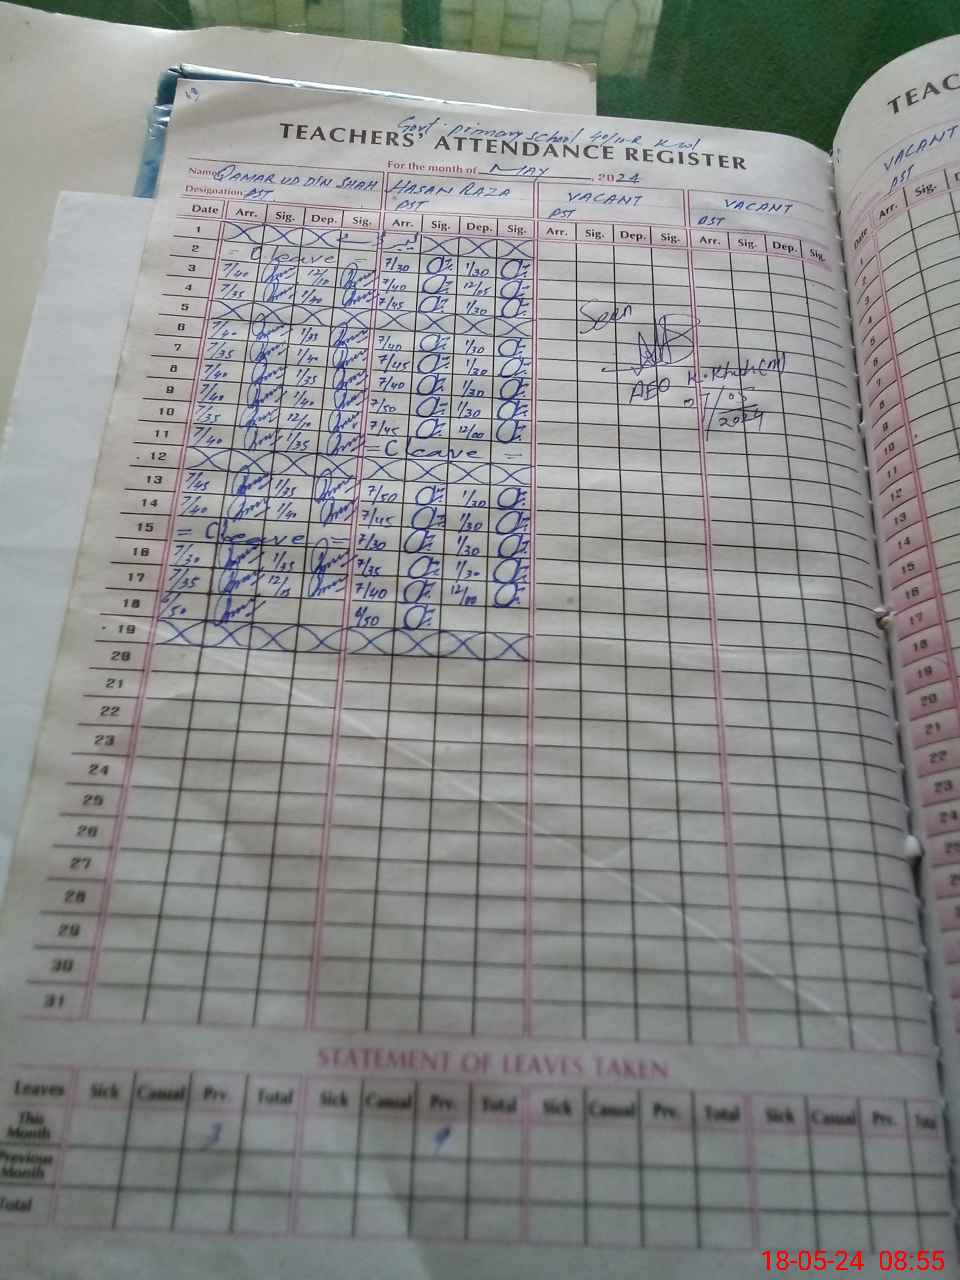 49
Govt. primary school 40/12-R Kwl
TEACHERS' ATTENDANCE REGISTER
For the month of MAY, 2024
Name QAMAR UD DIN SHAH HASAN RAZA VACANT VACANT
Designation PST PST PST PST
Date Arr. Sig. Dep. Sig. Arr. Sig. Dep. Sig. Arr. Sig. Dep. Sig. Arr. Sig. Dep. Sig.
1
2 = C leave = 7/30 1/30
3 7/40 12/10 7/40 12/05
4 7/35 1/30 7/45 1/30
5
6 7/40 1/35 7/40 1/30
7 7/35 1/40 7/45 1/30
8 7/40 1/35 7/40 1/30
9 7/40 1/40 7/50 1/30
10 7/35 12/10 7/45 12/00
11 7/40 1/35 = C leave =
12
13 7/45 1/35 7/50 1/30
14 7/40 1/40 7/45 1/30
15 = C leave = 7/30 1/30
16 7/30 1/35 7/35 1/30
17 7/35 12/15 7/40 12/00
18 6/50
19
20
21
22
23
24
25
26
27
28
29
30
31
Seen
AEO K. Khuh (M)
05
2024
STATEMENT OF LEAVES TAKEN
Leaves Sick Casual Prv. Total Sick Casual Prv. Total Sick Casual Prv. Total Sick Casual Prv. Total
This Month 3 9
Previous Month
Total
TEAC
VACANT
PST
Date Arr. Sig.
1
2
3
4
5
6
7
8
9
10
11
12
13
14
15
16
17
18
19
20
21
22
23
24
18-05-24 08:55